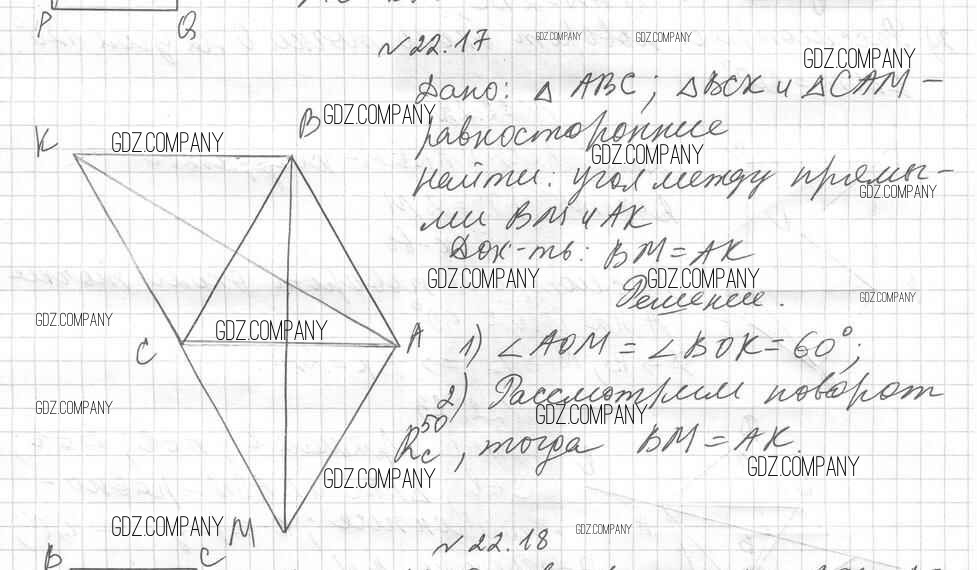 P Q
№ 22.17
GDZ.COMPANY GDZ.COMPANY GDZ.COMPANY
Дано: △ ABC; △BCK и △CAM –
K B GDZ.COMPANY GDZ.COMPANY
равносторонние
GDZ.COMPANY
Найти: угол между прямы-
GDZ.COMPANY
ми BM и AK
Док-ть: BM = AK
GDZ.COMPANY GDZ.COMPANY
Решение.
GDZ.COMPANY
GDZ.COMPANY GDZ.COMPANY
C A
1) ∠AOM = ∠BOK = 60°;
2) Рассмотрим поворот
GDZ.COMPANY GDZ.COMPANY
R_C^50°, тогда BM = AK.
GDZ.COMPANY GDZ.COMPANY
GDZ.COMPANY M GDZ.COMPANY
№ 22.18
B C